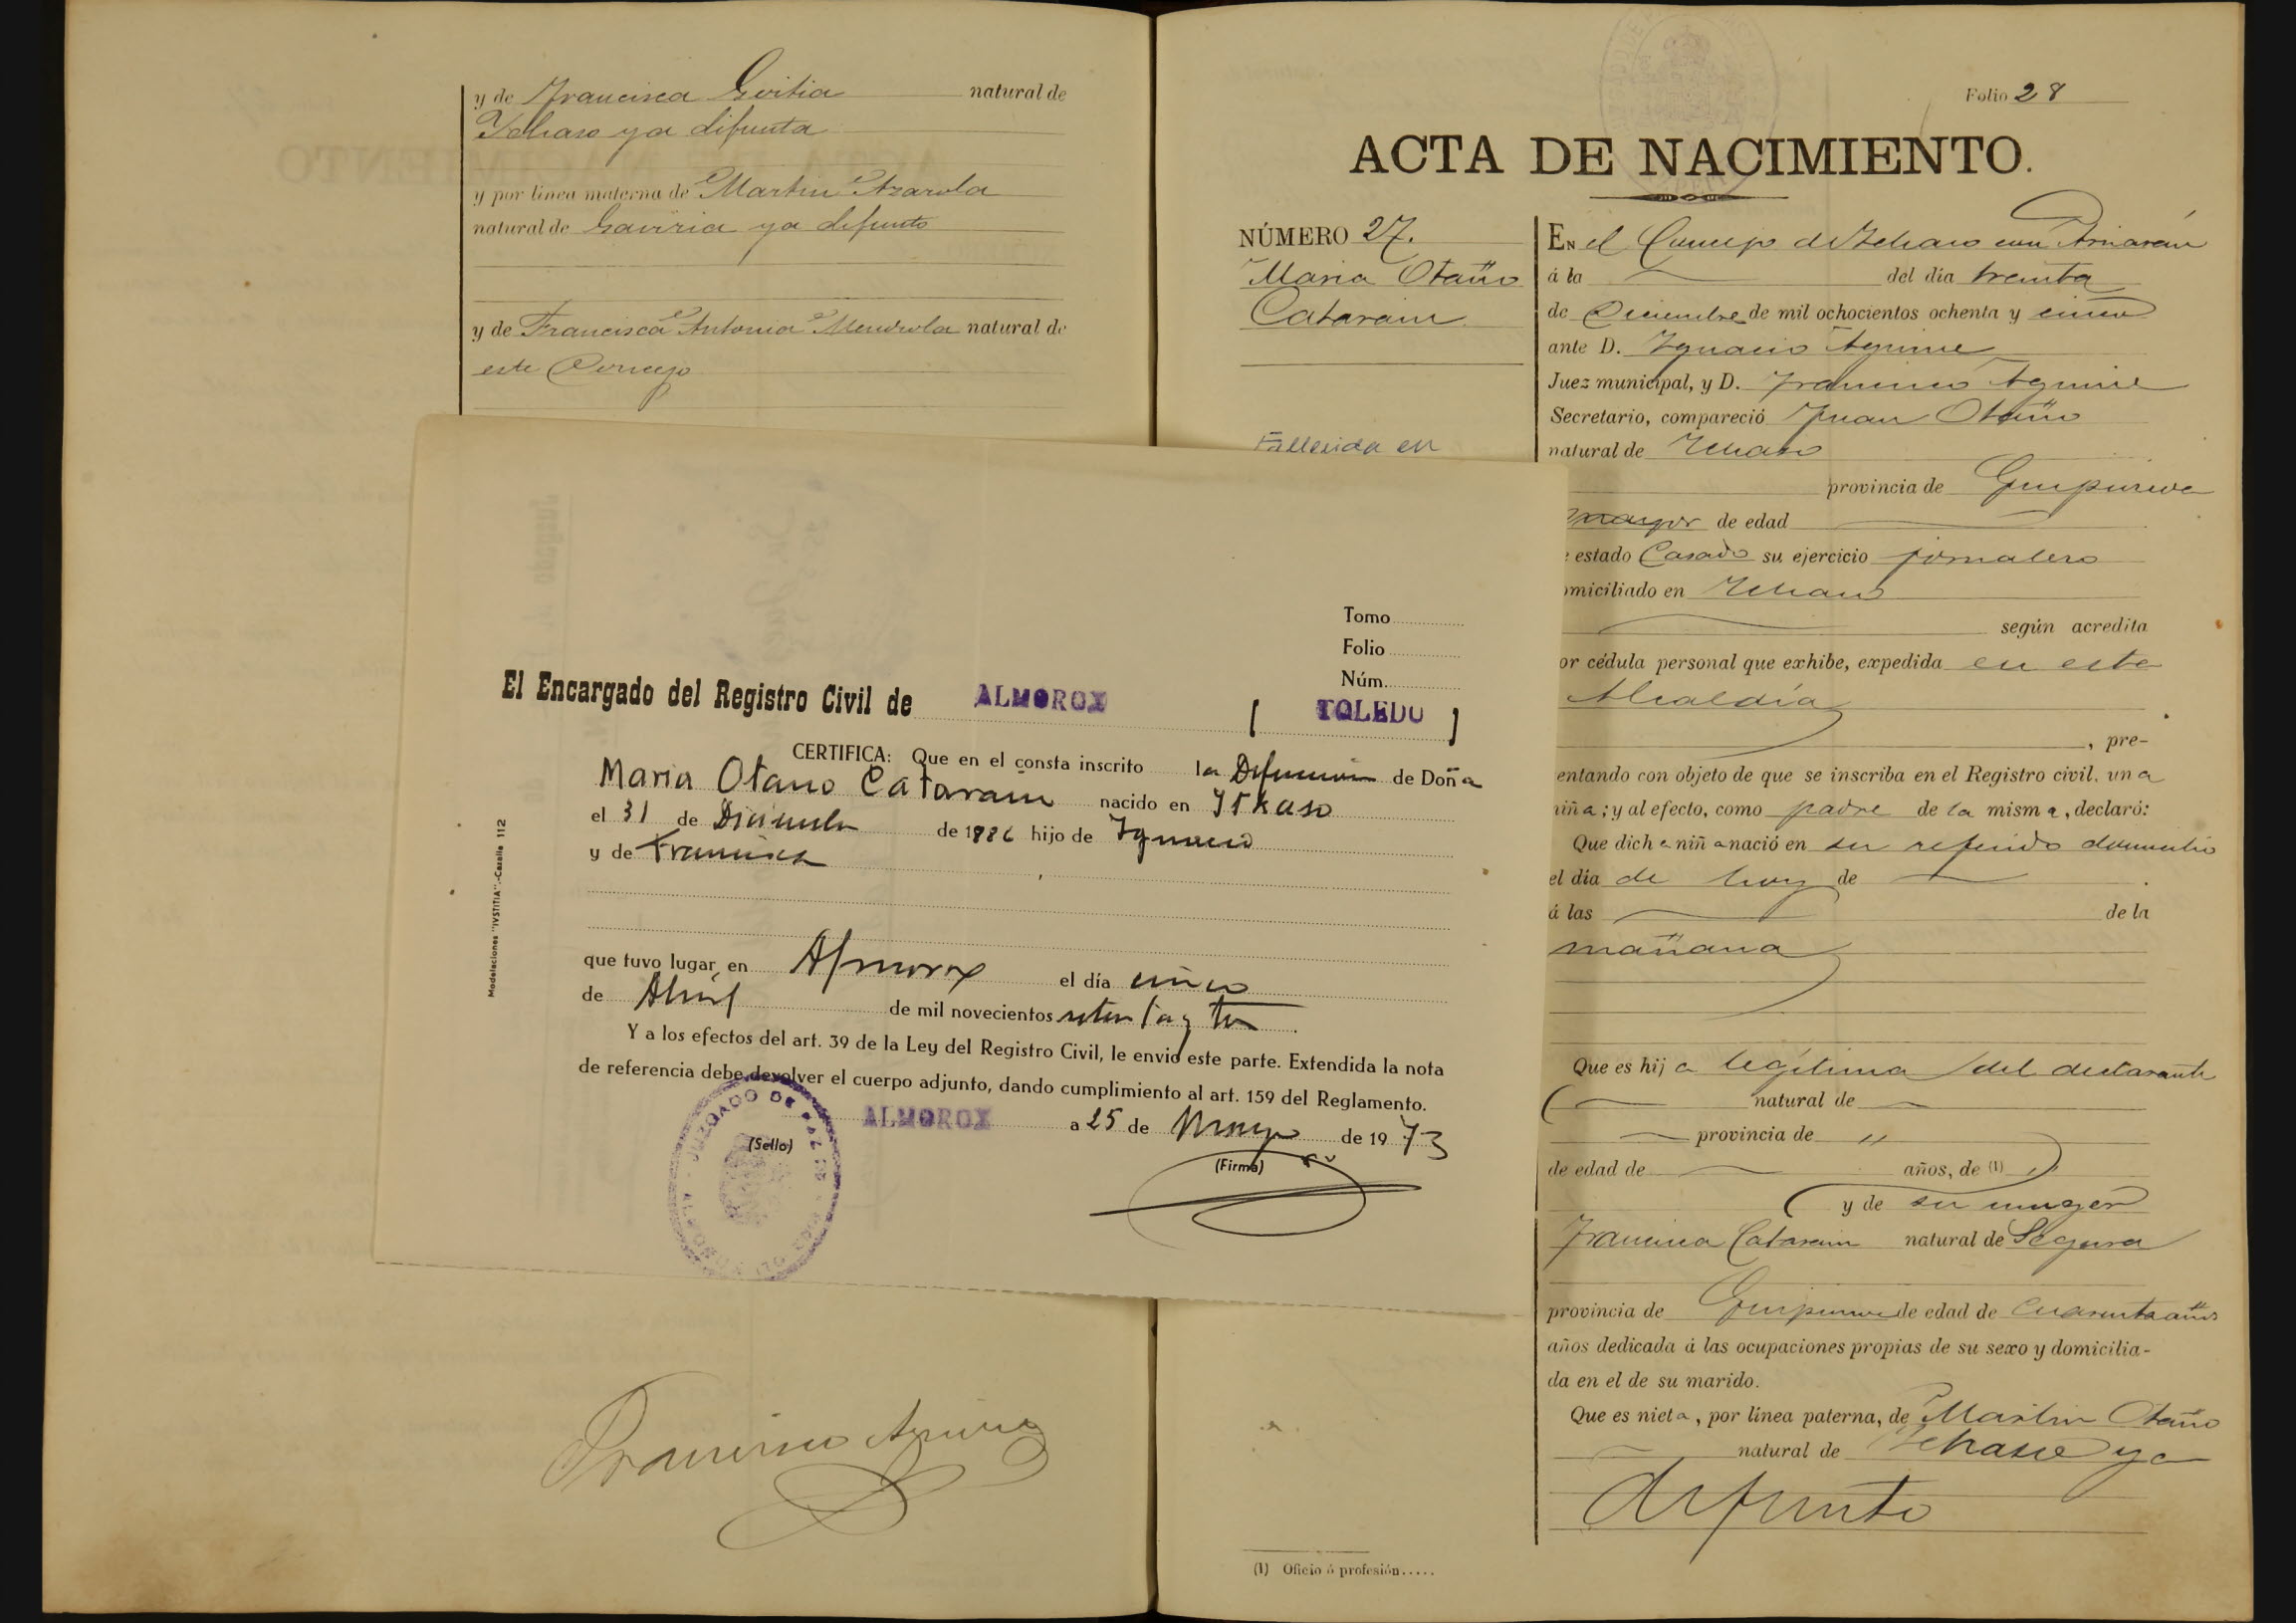 y de Francisca Goitia natural de
Ichaso ya difunta
y por línea materna de Martin Azarola
natural de Gaviria ya difunto
y de Francisca Antonia Mendiola natural de
este Concejo
Francisco Aguirre
Folio 28
ACTA DE NACIMIENTO.
NÚMERO 27.
Maria Otaño
Catarain
Fallecida en
EN el Concejo de Ichaso con Arriarán
á la del día treinta
de Diciembre de mil ochocientos ochenta y cinco
ante D. Ygnacio Aguirre
Juez municipal, y D. Francisco Aguirre
Secretario, compareció Juan Otaño
natural de Ichaso
provincia de Guipuzcoa
mayor de edad
estado Casado su ejercicio jornalero
omiciliado en Ichaso
según acredita
or cédula personal que exhibe, expedida en esta
Alcaldía
, pre-
entando con objeto de que se inscriba en el Registro civil, una
niña; y al efecto, como padre de la misma, declaró:
Que dicha niña nació en su referido domicilio
el día de hoy de
á las de la
mañana
Que es hija legítima del declarante
natural de
provincia de "
de edad de años, de (1)
y de su muger
Francisca Catarain natural de Segura
provincia de Guipuzcoa de edad de cuarenta años
años dedicada á las ocupaciones propias de su sexo y domicilia-
da en el de su marido.
Que es nieta, por línea paterna, de Martin Otaño
natural de Ichaso ya
difunto
(1) Oficio ó profesión.....
Tomo
Folio
Núm.
El Encargado del Registro Civil de ALMOROX ( TOLEDO )
CERTIFICA: Que en el consta inscrito la Defunción de Doña
Maria Otano Catarain nacido en Itxaso
el 31 de Diciembre de 1886 hijo de Ignacio
y de Francisca
que tuvo lugar en Almorox el día cinco
de Abril de mil novecientos setenta y tres
Y a los efectos del art. 39 de la Ley del Registro Civil, le envío este parte. Extendida la nota
de referencia debe devolver el cuerpo adjunto, dando cumplimiento al art. 159 del Reglamento.
ALMOROX a 25 de Mayo de 1973
(Sello)
(Firma)
JUZGADO DE PAZ DE
Modelaciones "IVSTITIA".-Cazalla 112